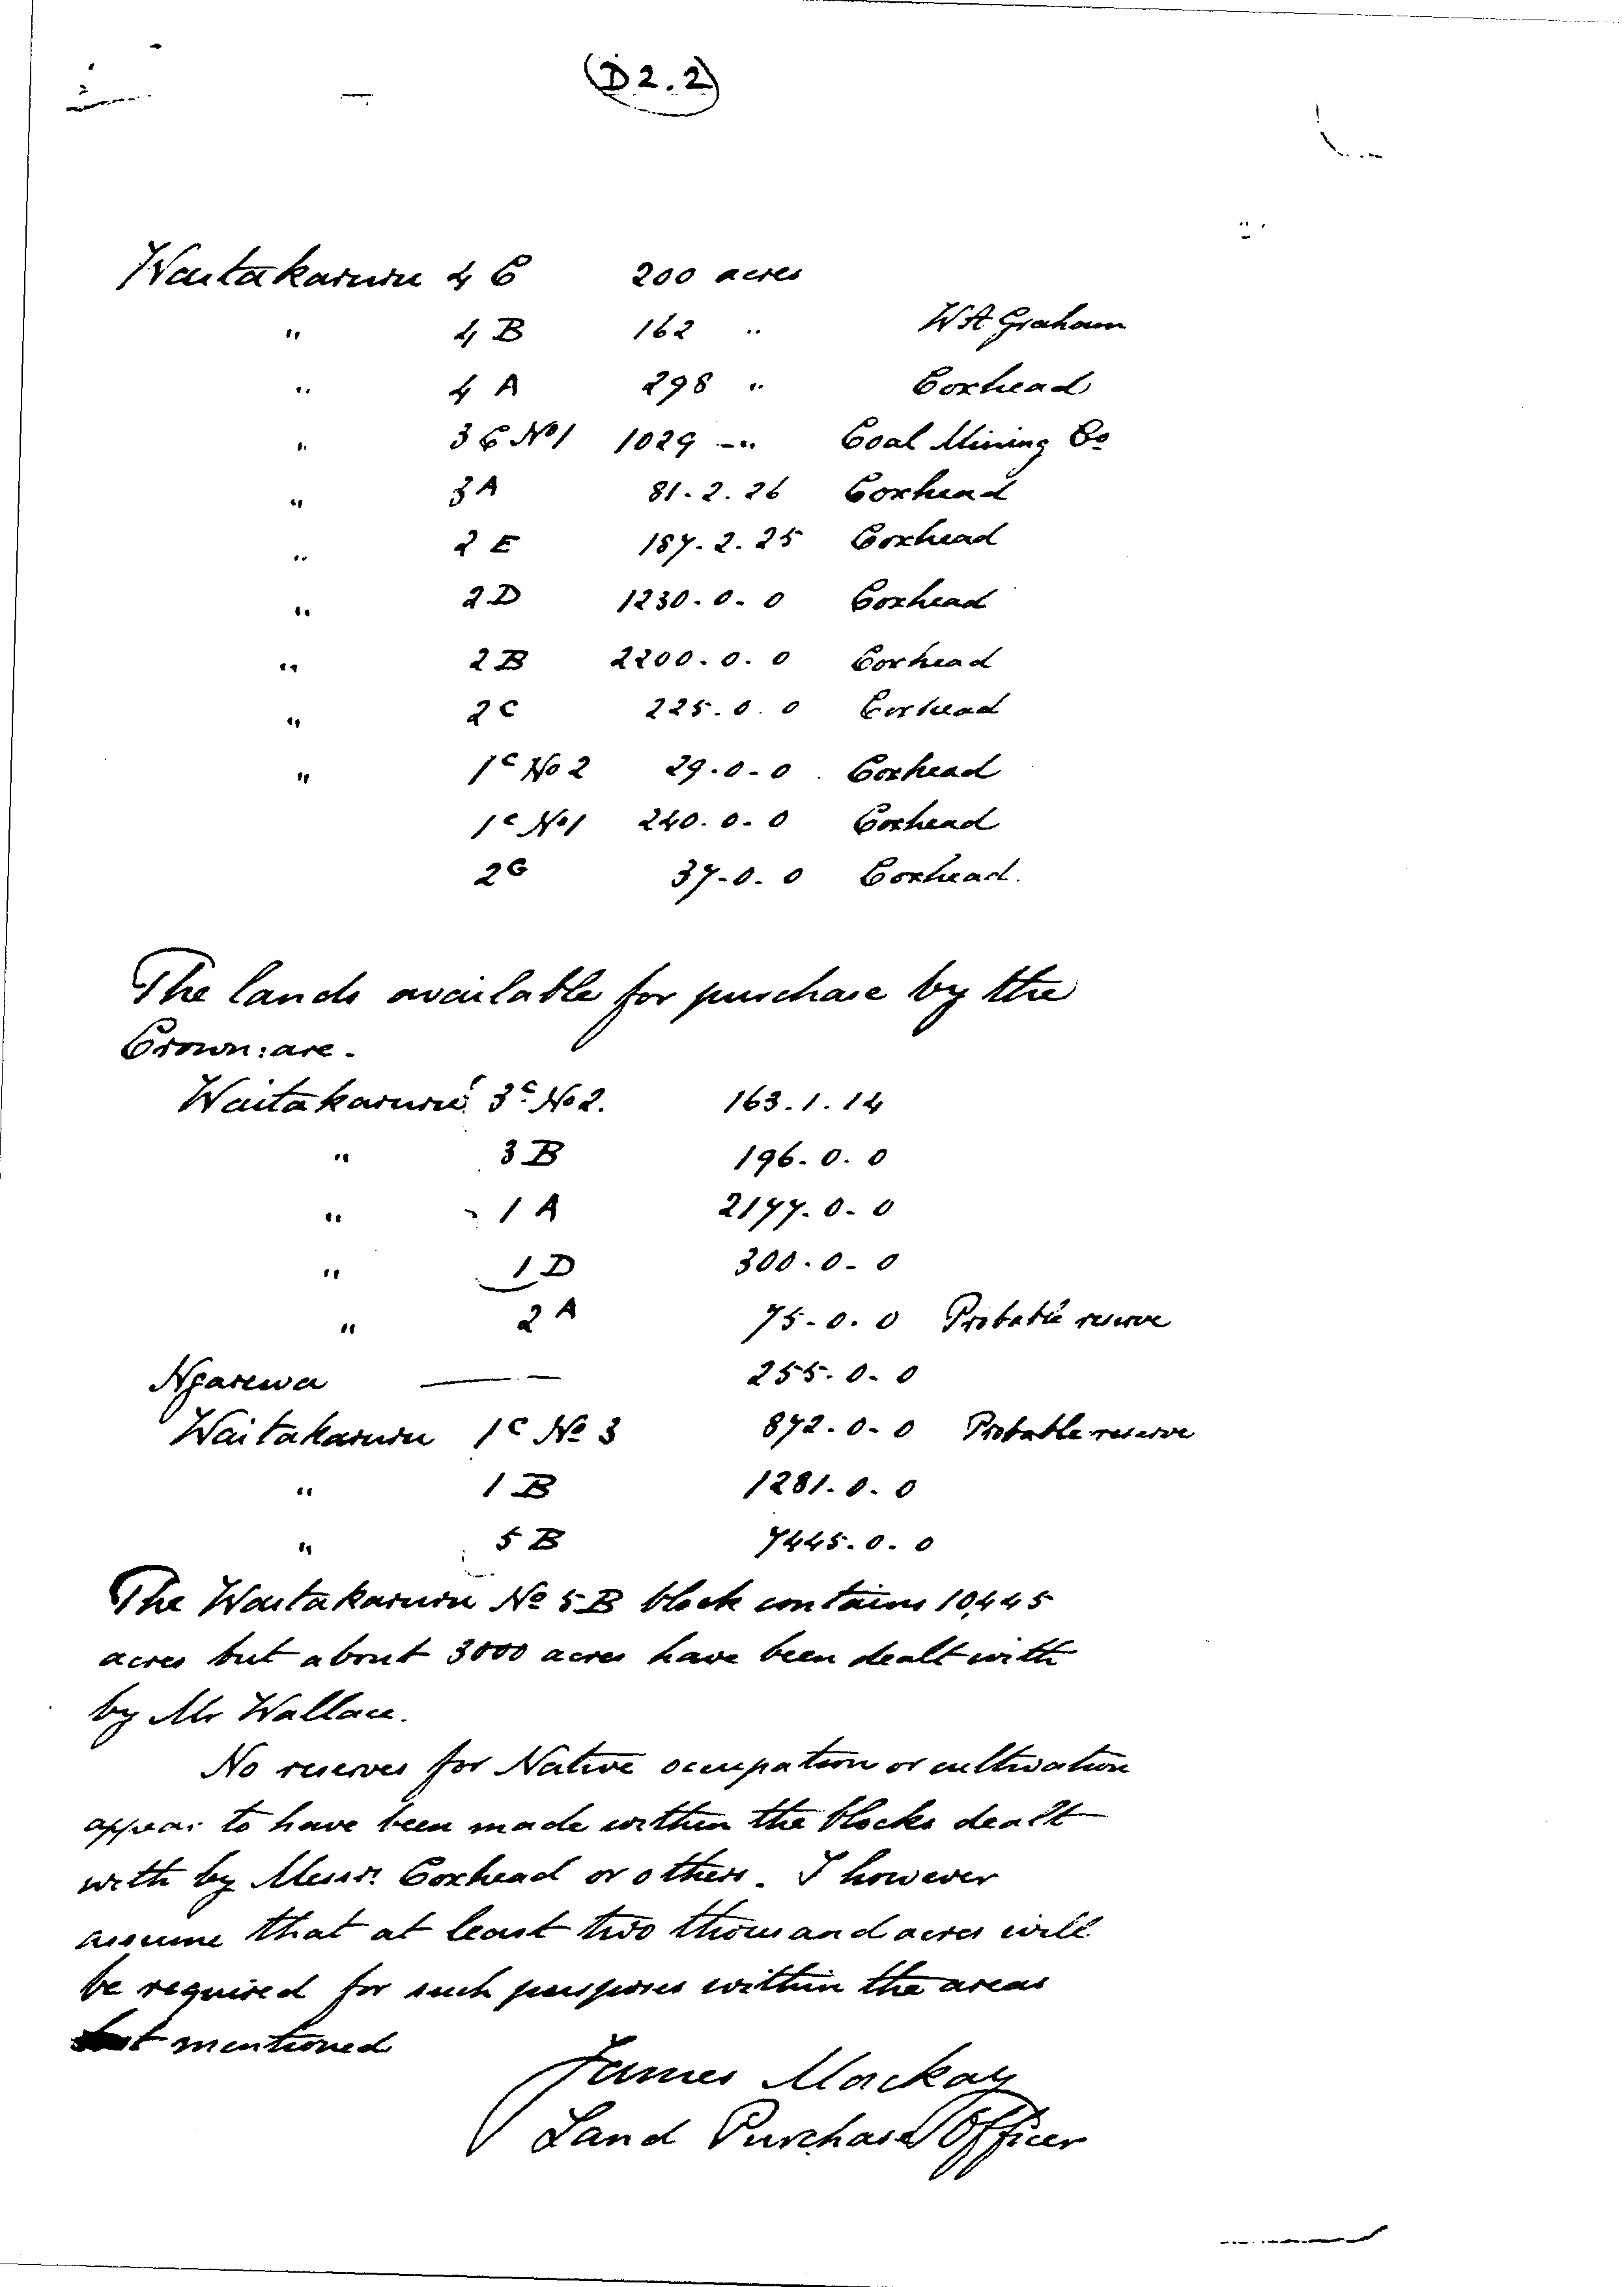 (D 2.2)
Waitakaruru 4 C 200 acres
" 4 B 162 " W A Graham
" 4 A 298 " Coxhead
" 3 C No 1 1029 — " Coal Mining Co
" 3 A 81. 2. 26 Coxhead
" 2 E 187. 2. 25 Coxhead
" 2 D 1230. 0. 0 Coxhead
" 2 B 2200. 0. 0 Coxhead
" 2 C 225. 0. 0 Coxhead
" 1 C No 2 29. 0. 0 Coxhead
1 C No 1 240. 0. 0 Coxhead
2 G 37. 0. 0 Coxhead.
The lands available for purchase by the
Crown: are -
Waitakaruru 3 C No 2. 163. 1. 14
" 3 B 196. 0. 0
" 1 A 2177. 0. 0
" 1 D 300. 0. 0
" 2 A 75. 0. 0 Probable reserve
Ngarewa — 255. 0. 0
Waitakaruru 1 C No 3 872. 0. 0 Probable reserve
" 1 B 1281. 0. 0
" 5 B 7445. 0. 0
The Waitakaruru No 5 B block contains 10,445
acres but about 3000 acres have been dealt with
by Mr Wallace.
No reserves for Native occupation or cultivation
appear to have been made within the blocks dealt
with by Messrs. Coxhead or others. I however
assume that at least two thousand acres will
be required for such purposes within the areas
mentioned
James Mackay
Land Purchase Officer